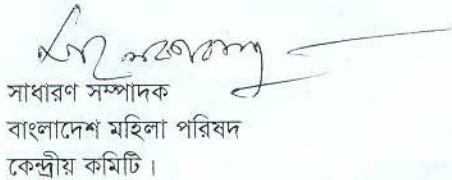 সাধারণ সম্পাদক
বাংলাদেশ মহিলা পরিষদ
কেন্দ্রীয় কমিটি।